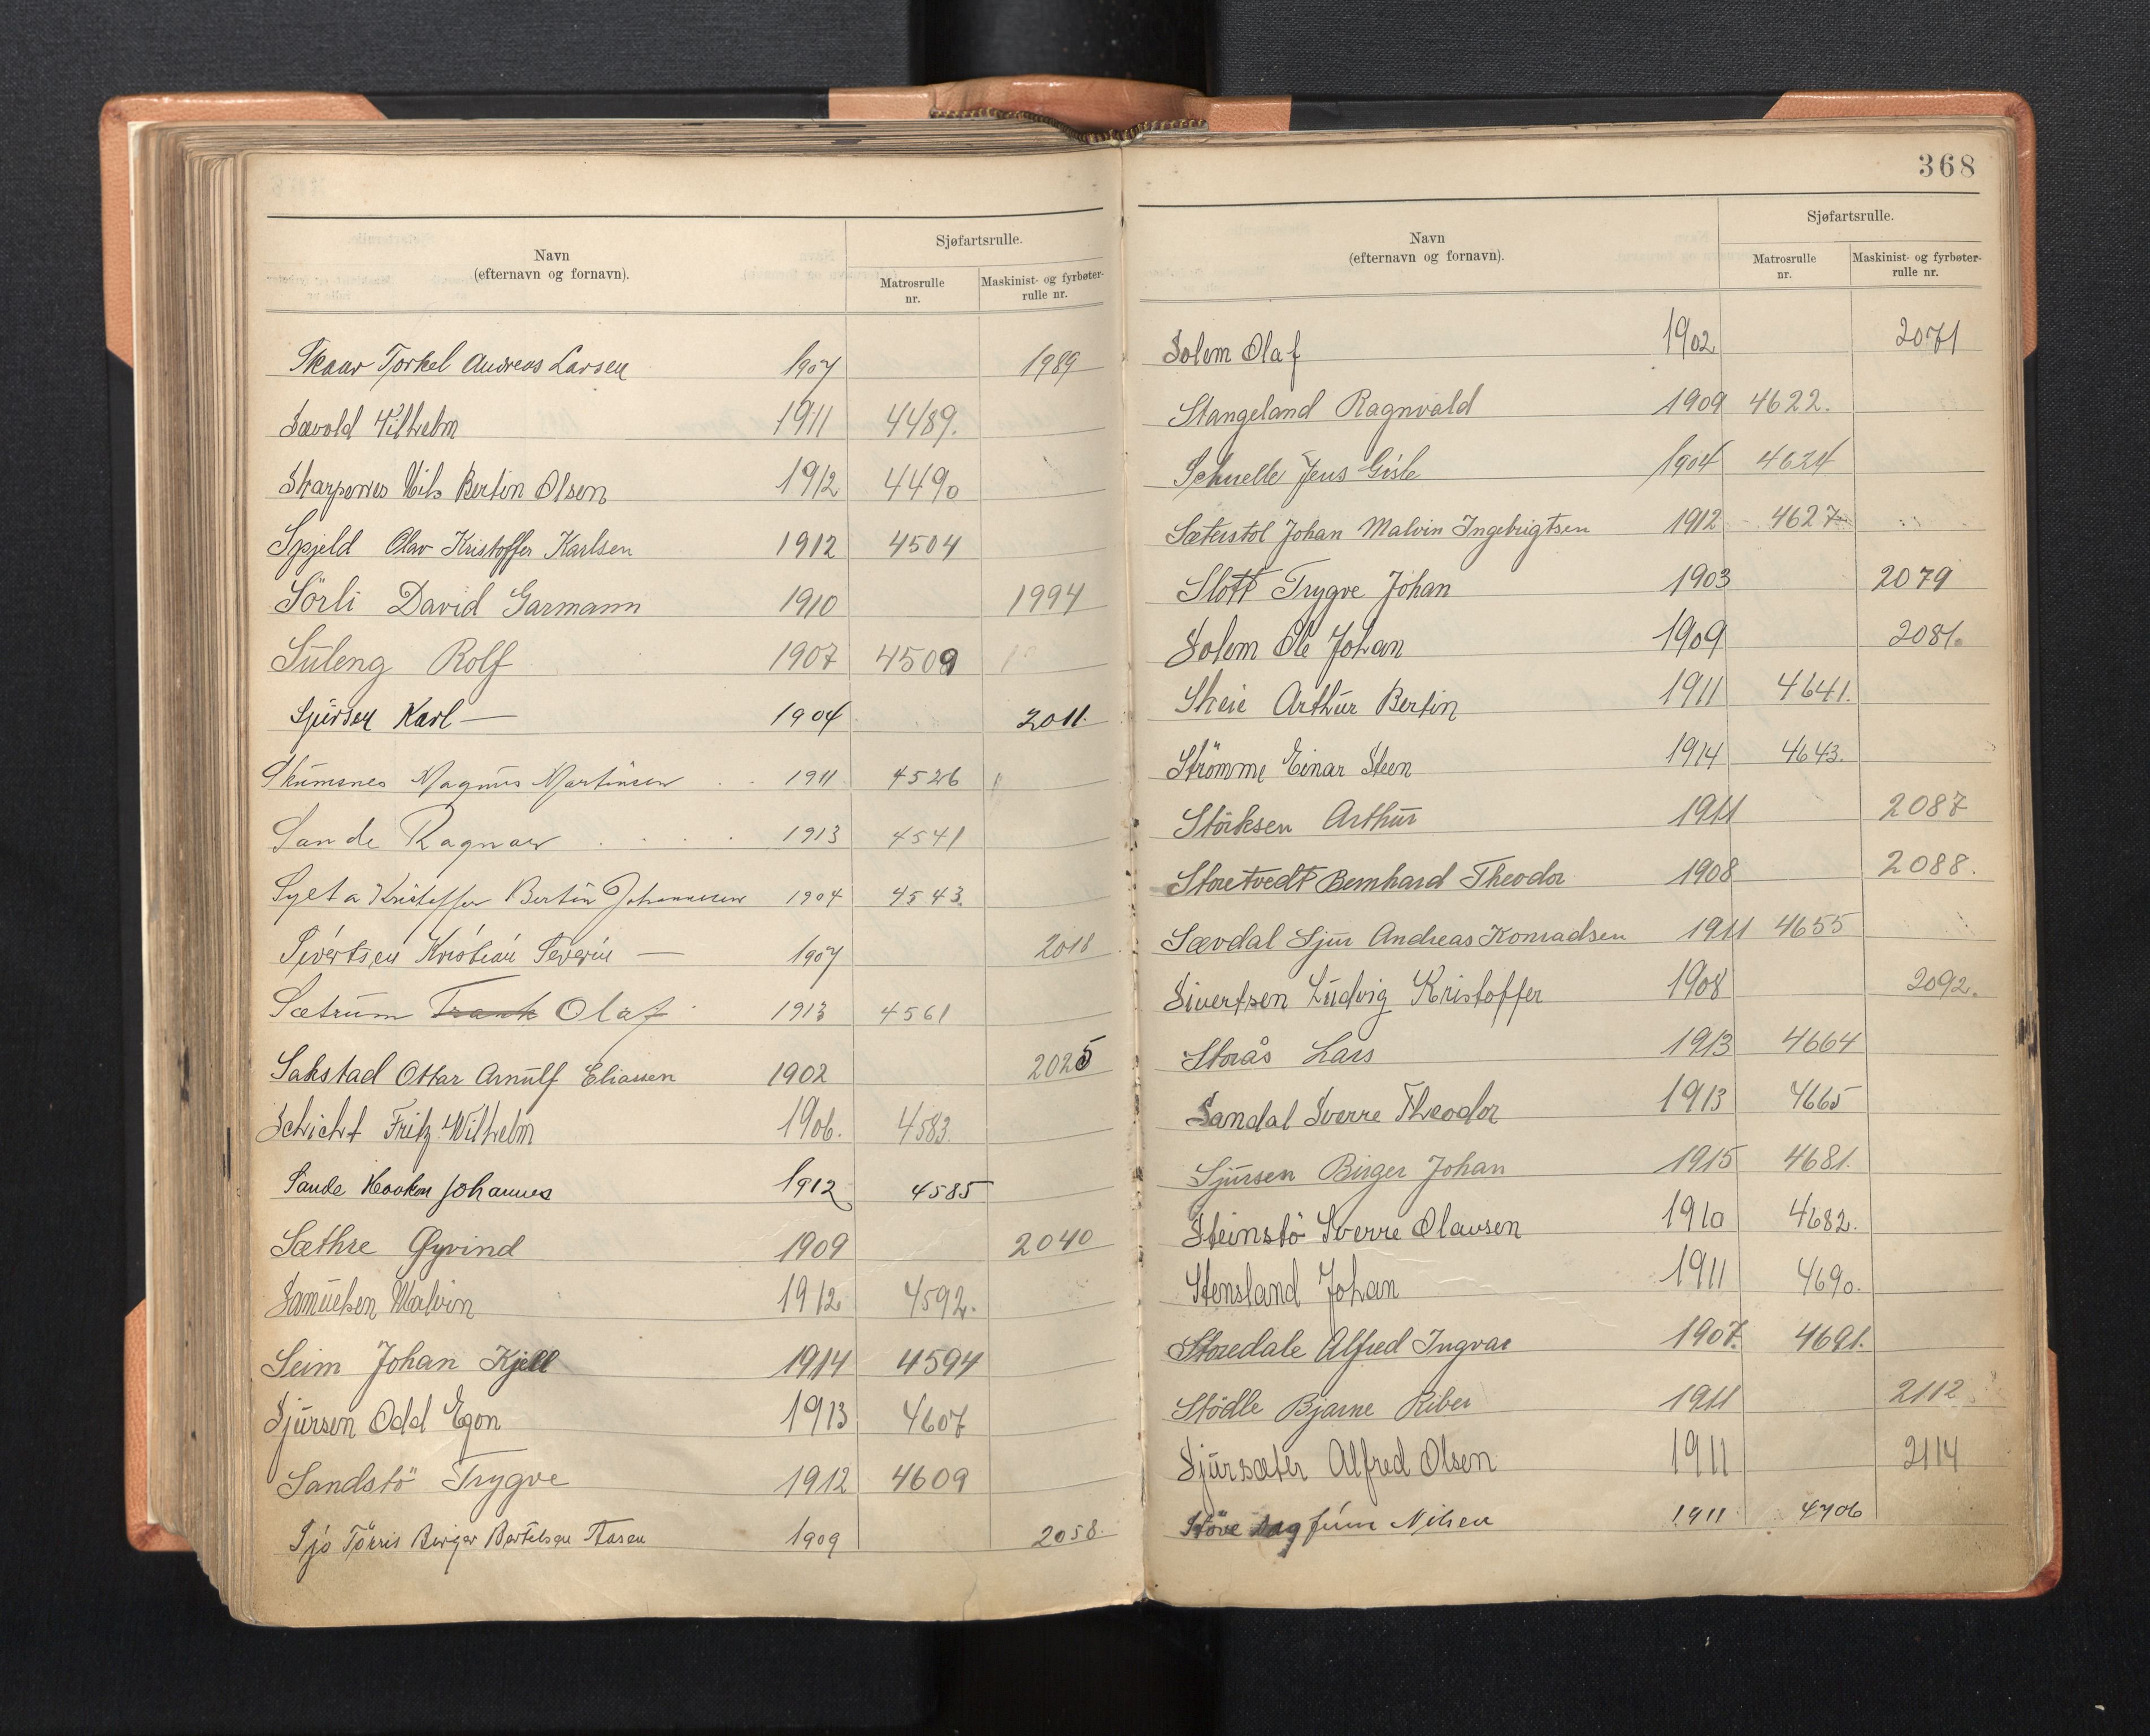 Navn
(efternavn og fornavn).
Sjøfartsrulle.
Matrosrulle
nr.
Maskinist- og fyrbøter-
rulle nr.
Skaar Torkel Andreas Larsen 1907 1989
Sævold Vilhelm 1911 4489.
Skarpenes Nils Bertin Olsen 1912 4490
Spjeld Olav Kristoffer Karlsen 1912 4504
Sörli David Garmann 1910 1994
Süleng Rolf 1907 4509
Sjursen Karl — 1904 2011.
Skumsnes Magnus Martinsen 1911 4526
Sande Ragnar 1913 4541
Sylta Kristoffer Bertin Johannesen 1904 4543.
Sivertsen Kristian Severin — 1907 2018
Sætrum Frank Olaf 1913 4561
Sakstad Ottar Arnulf Eliassen 1902 2025
Schicht Fritz Wilhelm 1906. 4583.
Sande Haakon Johannes 1912 4585
Sæthre Øyvind 1909 2040
Samuelsen Malvin 1912 4592.
Seim Johan Kjell 1914 4594
Sjursen Odd Egon 1913 4607
Sandstö Trygve 1912 4609
Sjö Törris Birger Bertelsen Aasen 1909 2058.
368
Navn
(efternavn og fornavn).
Sjøfartsrulle.
Matrosrulle
nr.
Maskinist- og fyrbøter-
rulle nr.
Solem Olaf 1902 2071
Stangeland Ragnvald 1909 4622.
Schnelle Jens Gisle 1904 4624
Sæterstøl Johan Malvin Ingebrigtsen 1912 4627
Slott Trygve Johan 1903 2079
Solem Ole Johan 1909 2081.
Skeie Arthur Bertin 1911 4641.
Strömme Einar Steen 1914 4643.
Störksen Arthur 1911 2087
Storetvedt Bernhard Theodor 1908 2088.
Sævdal Sjur Andreas Konradsen 1911 4655
Sivertsen Ludvig Kristoffer 1908 2092.
Storås Lars 1913 4664
Sandal Sverre Theodor 1913 4665
Sjursen Birger Johan 1915 4681.
Steinstö Sverre Olausen 1910 4682.
Stensland Johan 1911 4690.
Storedale Alfred Ingvar 1907. 4691.
Stödle Bjarne Riber 1911 2112
Sjursæter Alfred Olsen 1911 2114
Støve Dagfinn Nilsen 1911 4706